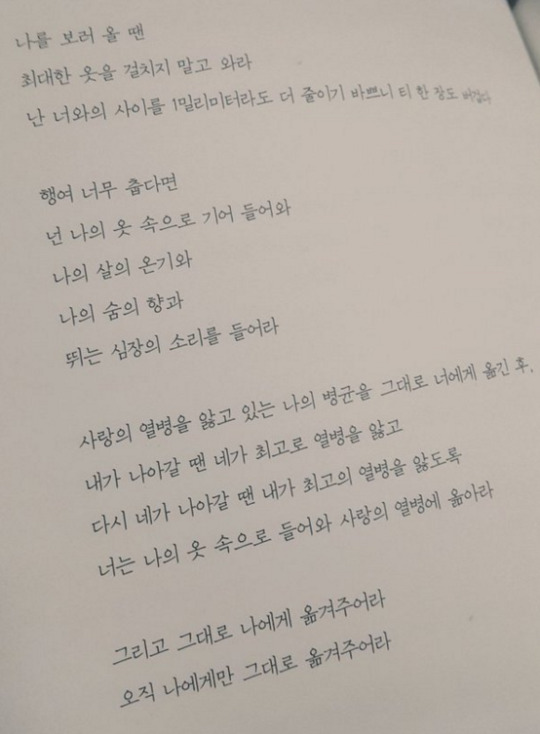 나를 보러 올 땐
최대한 옷을 걸치지 말고 와라
난 너와의 사이를 1밀리미터라도 더 줄이기 바쁘니 티 한 장도 버겁다
행여 너무 춥다면
넌 나의 옷 속으로 기어 들어와
나의 살의 온기와
나의 숨의 향과
뛰는 심장의 소리를 들어라
사랑의 열병을 앓고 있는 나의 병균을 그대로 너에게 옮긴 후,
내가 나아갈 땐 네가 최고로 열병을 앓고
다시 네가 나아갈 땐 내가 최고의 열병을 앓도록
너는 나의 옷 속으로 들어와 사랑의 열병에 옮아라
그리고 그대로 나에게 옮겨주어라
오직 나에게만 그대로 옮겨주어라